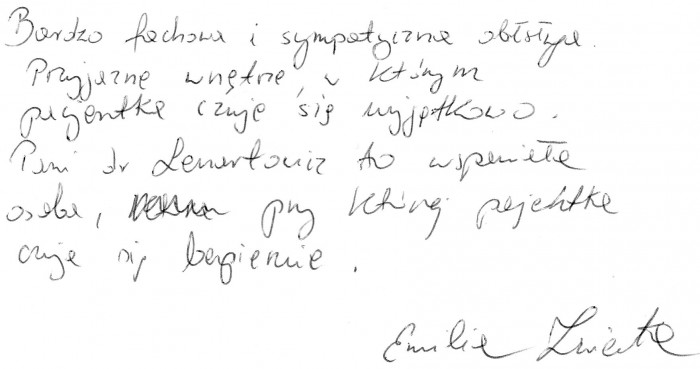 Bardzo fachowa i sympatyczna obsługa.
Przyjazne wnętrze, w którym
pacjentka czuje się wyjątkowo.
Pani dr Lenartowicz to wspaniała
osoba, przy której pacjentka
czuje się bezpiecznie.
Emilia